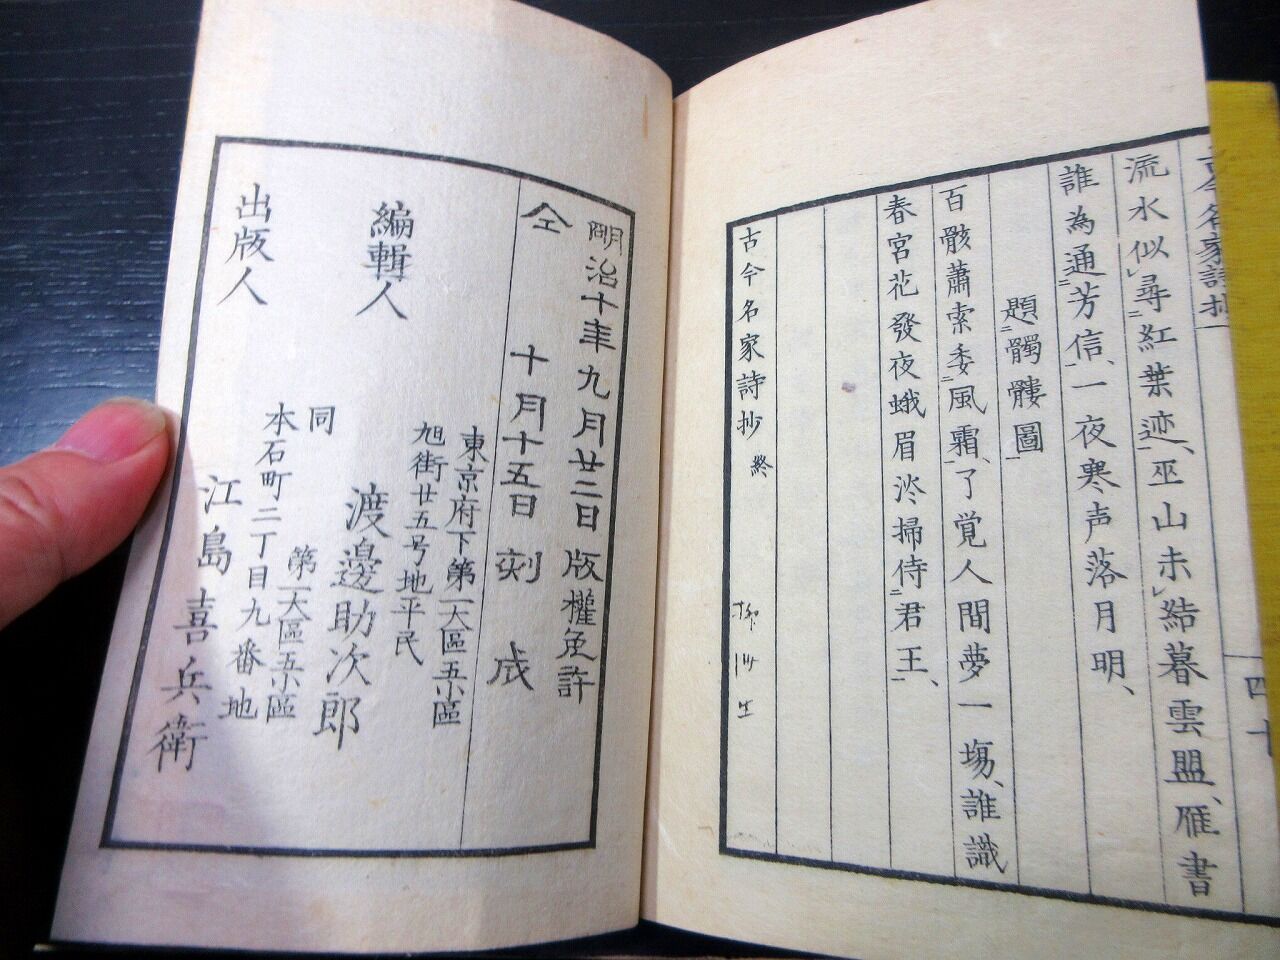 古今名家詩抄
四十
流水似尋紅葉迹、巫山未結暮雲盟、雁書
誰為通芳信、一夜寒声落月明、
題髑髏圖
百骸蕭索委風霜、了覚人間夢一場、誰識
春宮花發夜蛾眉淡掃侍君王、
古今名家詩抄 終
柳川生
明治十年九月廿二日版權免許
仝 十月十五日刻成
東京府下第一大區五小區
旭街廿五号地平民
編輯人 渡邊助次郎
同 第一大區五小區
本石町二丁目九番地
出版人 江島喜兵衛